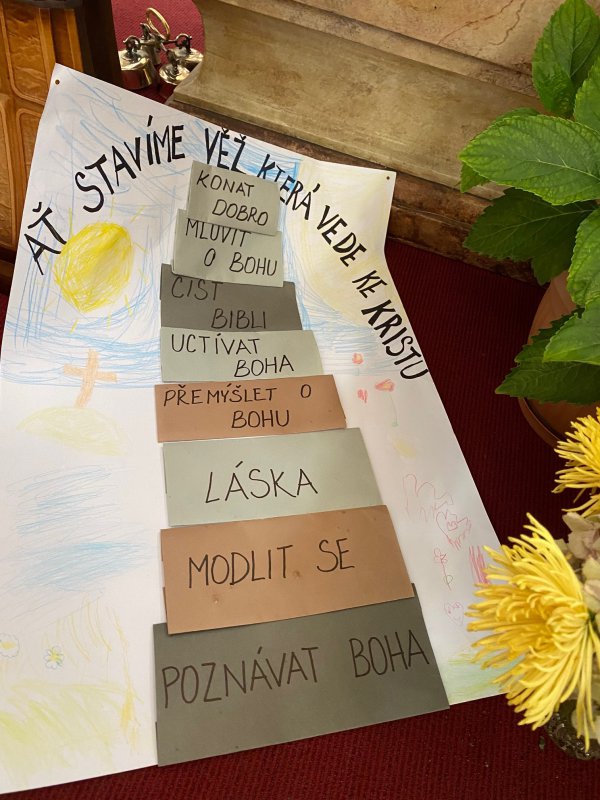 AŤ STAVÍME VĚŽ KTERÁ VEDE KE KRISTU
KONAT
DOBRO
MLUVIT
O BOHU
ČÍST
BIBLI
UCTÍVAT
BOHA
PŘEMÝŠLET O
BOHU
LÁSKA
MODLIT SE
POZNÁVAT BOHA